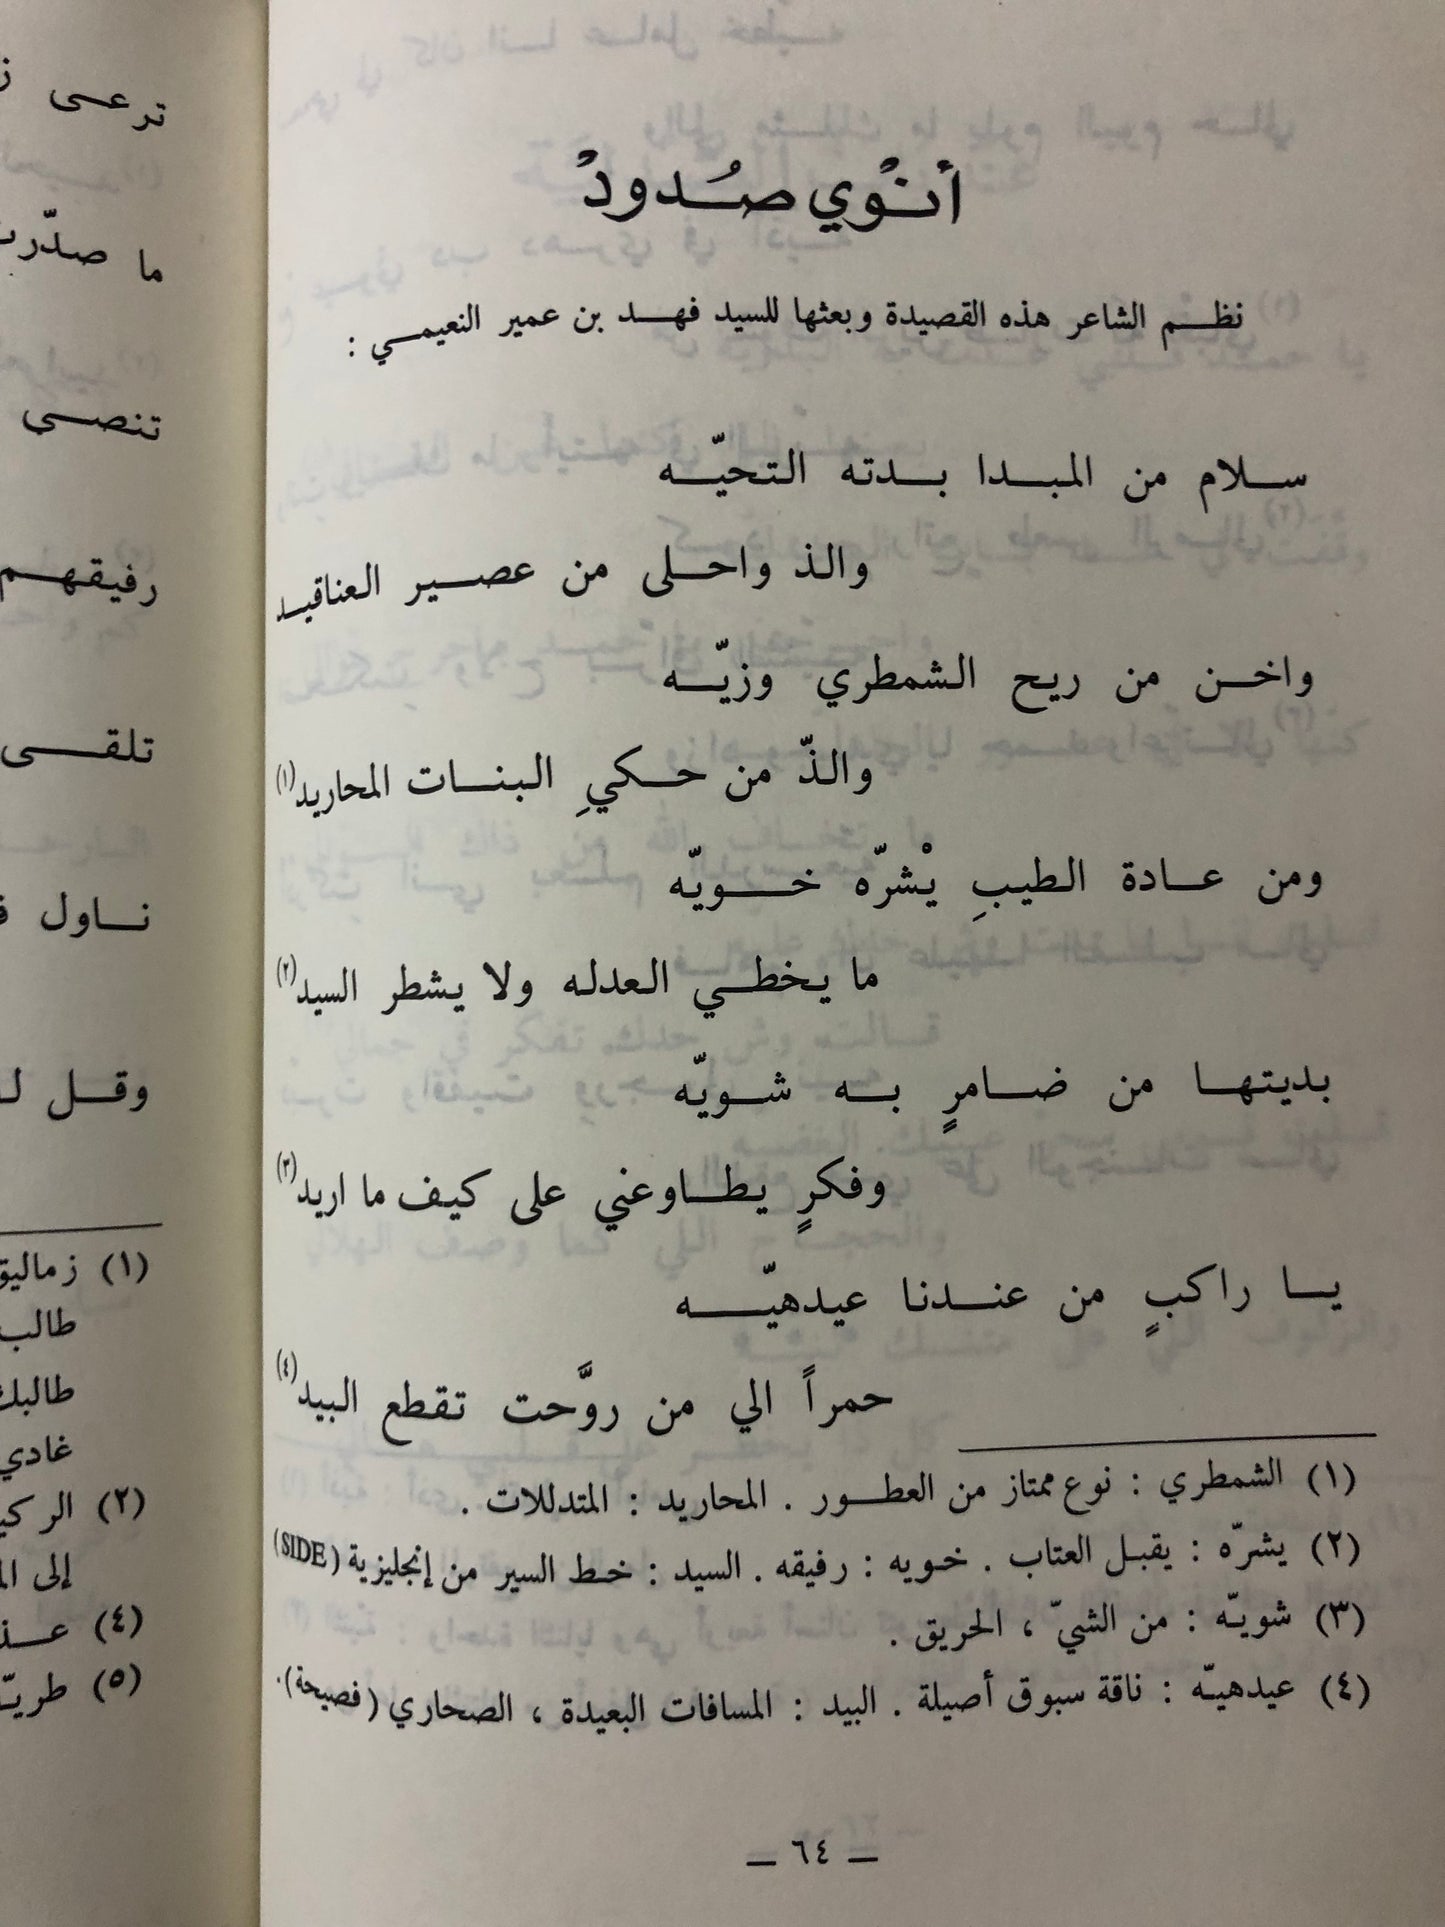 أنْوي صُدودْ
نظم الشاعر هذه القصيدة وبعثها للسيد فهد بن عمير النعيمي :
سلام من المبدا بدته التحيّه
والذ واحلى من عصير العناقيد
واخن من ريح الشمطري وزيّه
والذّ من حكيِ البنات المحاريد(١)
ومن عادة الطيبِ يْشرّه خويّه
ما يخطي العدله ولا يشطر السيد(٢)
بديتها من ضامرٍ به شويّه
وفكرٍ يطاوعني على كيف ما اريد(٣)
يا راكبٍ من عندنا عيدهيّه
حمراً الي من روَّحت تقطع البيد(٤)
(١) الشمطري : نوع ممتاز من العطور . المحاريد : المتدللات .
(٢) يشرّه : يقبل العتاب . خويه : رفيقه . السيد : خط السير من إنجليزية (SIDE)
(٣) شويّه : من الشيّ ، الحريق .
(٤) عيدهيّه : ناقة سبوق أصيلة . البيد : المسافات البعيدة ، الصحاري (فصيحة).
— ٦٤ —
ترعى
ما صدّرت
تنصى
رفيقهم
تلقى
ناول
وقل
(١) زماليق
طالب
طالبك
غادي
(٢)
إلى
(٤)
(٥)